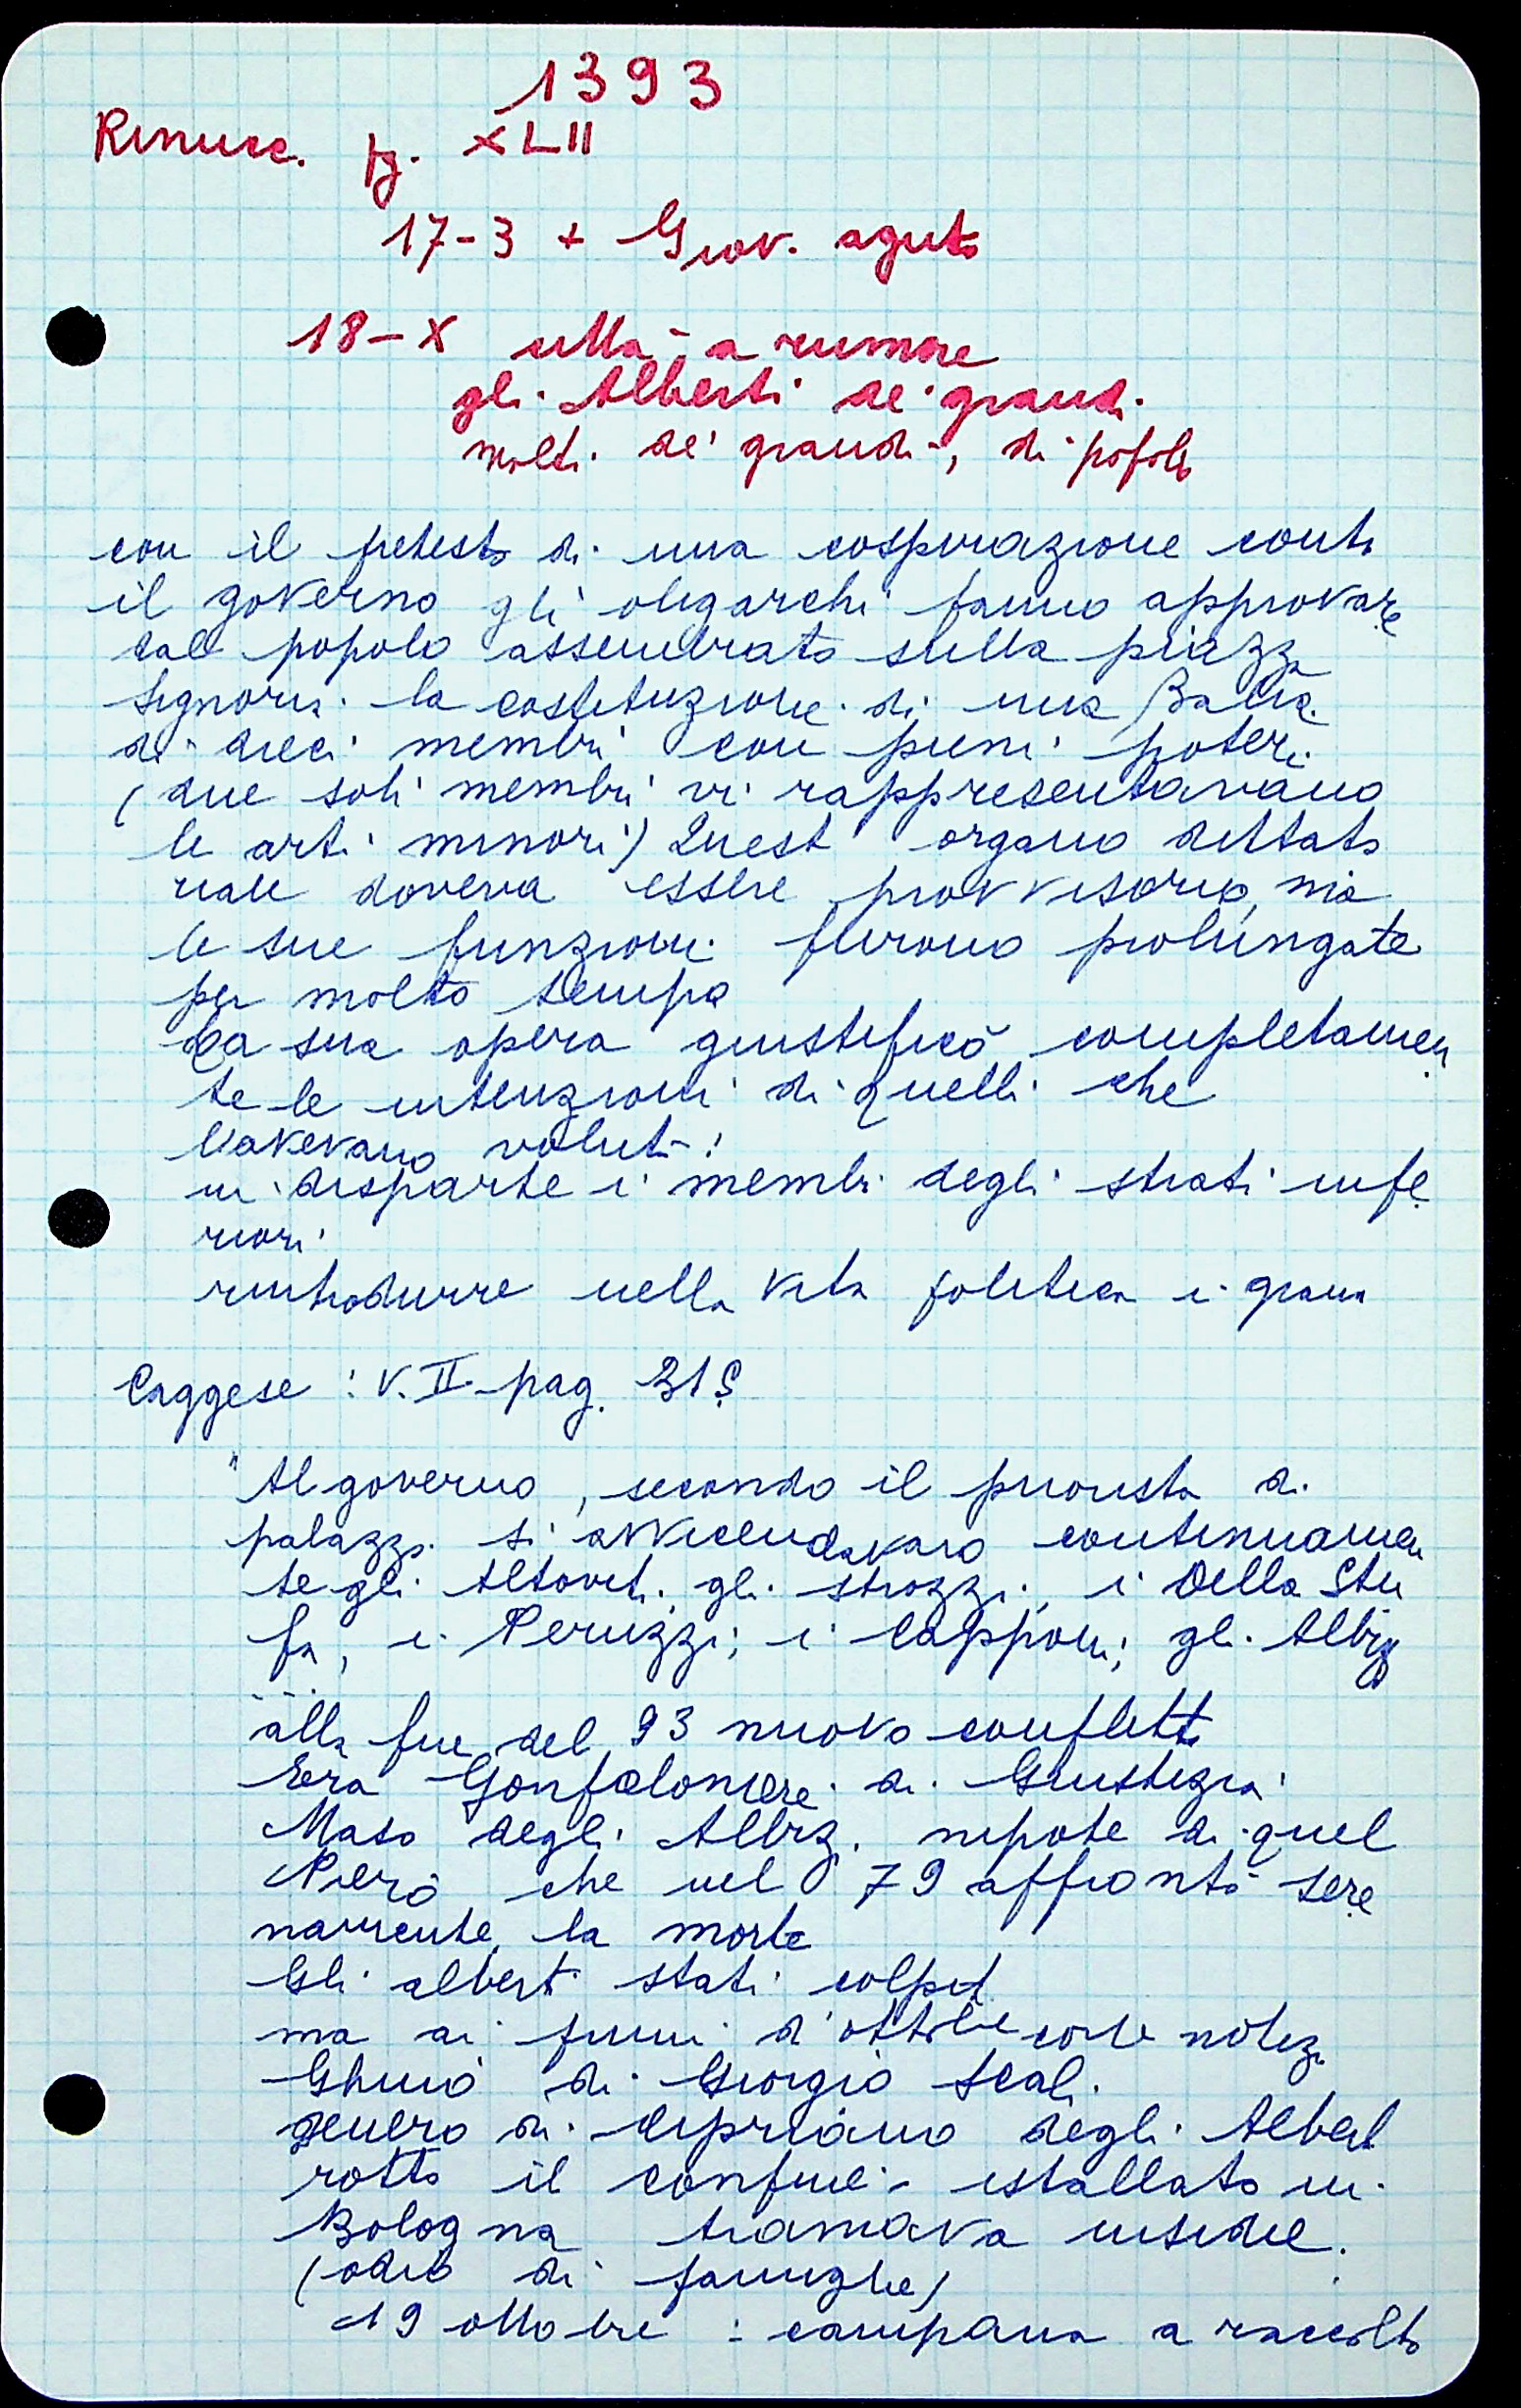 1393
Rinucc. pg. XLII
17-3 + Giov. aguto
18-X città a rumore
gli Alberti de' grandi
molti de' grandi, di popolo
con il pretesto di una cospirazione contro
il governo gli oligarchi fanno approvare
dal popolo assembrato sulla piazza
Signoria la costituzione di una Balìa
di dieci membri con pieni poteri
(due soli membri vi rappresentavano
le arti minori) Quest organo dittato
riale doveva essere provvisorio, ma
le sue funzioni furono prolungate
per molto tempo
La sua opera giustificò completamen
te le intenzioni di quelli che
l'avevano voluto:
in disparte i membri degli strati infe
riori
rintrodurre nella vita politica i gran
Caggese: V. II pag. 315
"Al governo, secondo il priorista di
palazzo si avvicendavano continuamen
te gli Altoviti, gli Strozzi, i Della Stu
fa, i Peruzzi; i Capponi; gli Albiz
alla fine del 93 nuovo conflitto
Era Gonfaloniere di Giustizia
Maso degli Albiz. nipote di quel
Piero che nel 79 affrontò sere
namente la morte
Gli alberti stati colpiti
ma ai primi d'ottobre corse notizia
Ghino di Giorgio Scali
genero di Cipriano degli Alberti
rotto il confine istallato in
Bologna tramava insidie.
(odio di famiglie)
19 ottobre: campana a raccolta